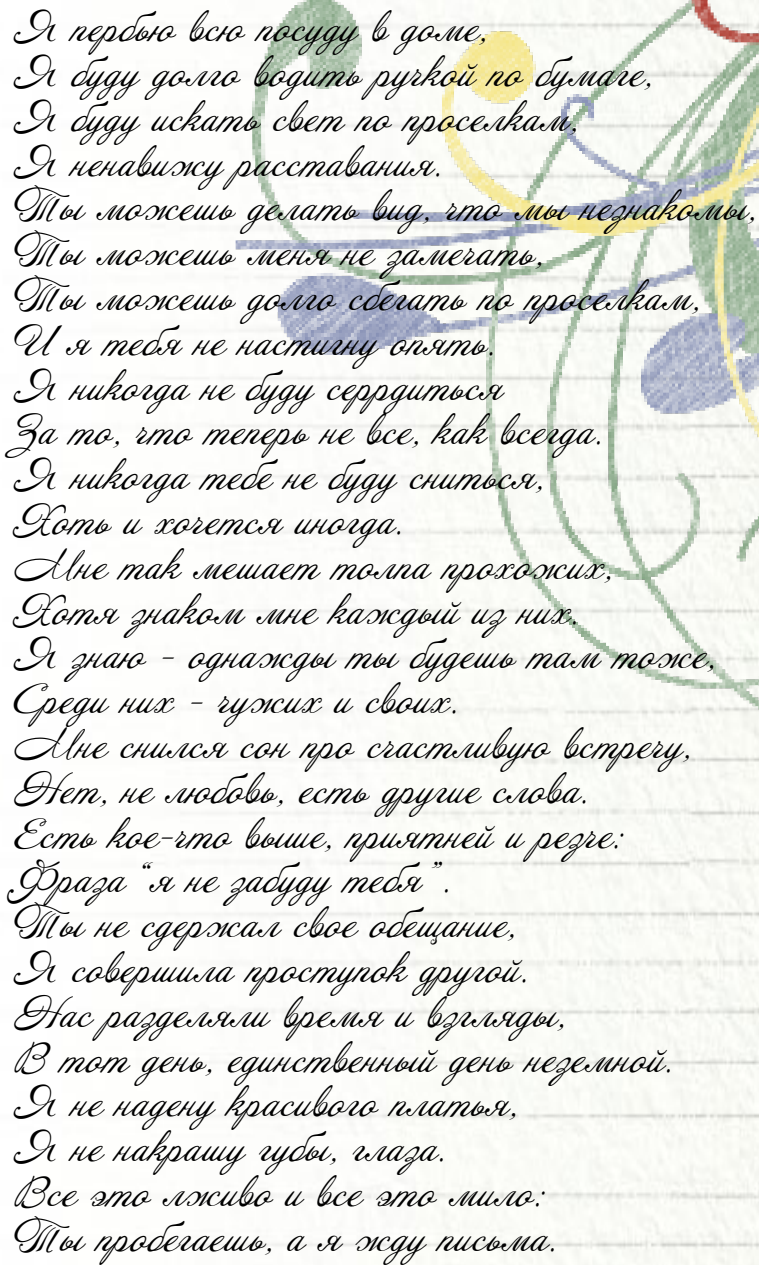 Я первью всю посуду в доме,
Я буду долго водить ручкой по бумаге,
Я буду искать свет по проселкам,
Я ненавижу расставания.
Ты можешь делать вид, что мы незнакомы,
Ты можешь меня не замечать,
Ты можешь долго сбегать по проселкам,
И я тебя не настигну опять.
Я никогда не буду серрдиться
За то, что теперь не все, как всегда.
Я никогда тебе не буду сниться,
Хоть и хочется иногда.
Мне так мешает толпа прохожих,
Хотя знаком мне каждый из них.
Я знаю - однажды ты будешь там тоже,
Среди них - чужих и своих.
Мне снился сон про счастливую встречу,
Нет, не любовь, есть другие слова.
Есть кое-что выше, приятней и резче:
Фраза “я не забуду тебя”.
Ты не сдержал свое обещание,
Я совершила проступок другой.
Нас разделяли время и взгляды,
В тот день, единственный день неземной.
Я не надену красивого платья,
Я не накрашу губы, глаза.
Все это лживо и все это мило:
Ты пробегаешь, а я жду письма.